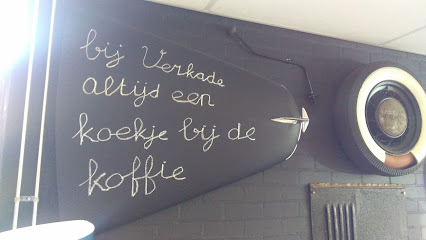 bij Verkade
altijd een
koekje bij de
koffie